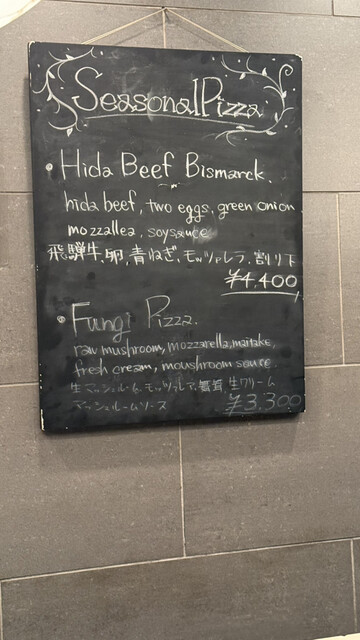 Seasonal Pizza
• Hida Beef Bismarck.
hida beef, two eggs, green onion
mozzallea, soysauce
飛騨牛、卵、青ねぎ、モッツァレラ、割り下
¥4.400
• Fungi Pizza.
raw mushroom, mozzarella, maitake,
fresh cream, moushroom sauce.
生マッシュルーム、モッツァレア、舞茸、生クリーム
マッシュルームソース
¥3.300